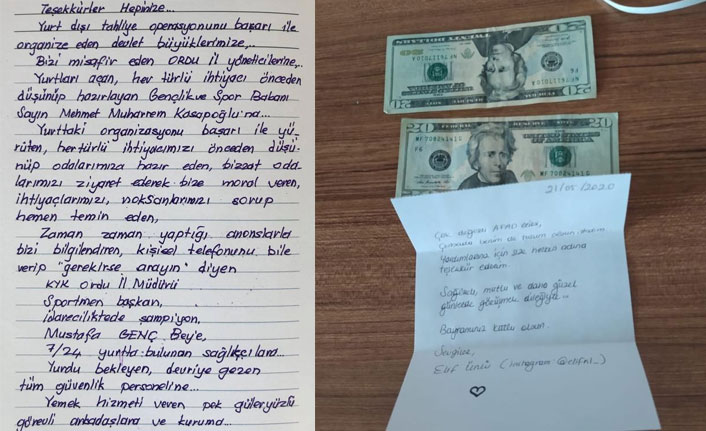 Teşekkürler Hepinize...
Yurt dışı tahliye operasyonunu başarı ile
organize eden devlet büyüklerimize,..
Bizi misafir eden ORDU il yöneticilerine,..
Yurtları açan, her türlü ihtiyacı önceden
düşünüp hazırlayan Gençlik ve Spor Bakanı
Sayın Mehmet Muharrem Kasapoğlu'na...
Yurttaki organizasyonu başarı ile yü-
rüten, her türlü ihtiyacımızı önceden düşü-
nüp odalarımıza hazır eden, bizzat oda-
larımızı ziyaret ederek bize moral veren,
ihtiyaçlarımızı, noksanlarımızı sorup
hemen temin eden,
Zaman zaman yaptığı anonslarla
bizi bilgilendiren, kişisel telefonunu bile
verip "gerekirse arayın" diyen
KYK Ordu İl Müdürü
Sportmen başkan,
idarecilikte de şampiyon,
Mustafa GENÇ Bey'e,
7/24 yurtta bulunan sağlıkçılara...
Yurdu bekleyen, devriye gezen
tüm güvenlik personeline...
Yemek hizmeti veren pek güleryüzlü
görevli arkadaşlara ve kuruma...
20
20
FEDERAL RESERVE
20
MF 70824141 G
MF 70824141 G
21/05/2020
Çok değerli AFAD
Yardımlarınız için adına
teşekkür ederim.
Sağlıklı, mutlu ve daha güzel
günlerde görüşmek dileğiyle...
Bayramınız kutlu olsun.
Sevgiler,
Elif Ünlü (instagram: